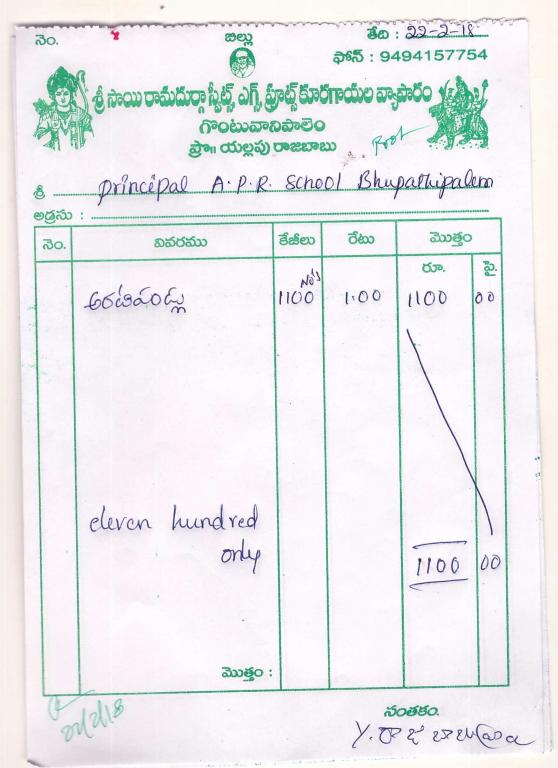 నెం. బిల్లు తేది : 22-2-18
ఫోన్ : 9494157754
శ్రీ సాయి రామదుర్గా స్వీట్స్, ఎగ్స్, ఫ్రూట్స్ కూరగాయల వ్యాపారం
గొంటువానిపాలెం
ప్రొ॥ యల్లపు రాజబాబు
శ్రీ principal A.P.R. School Bhupathipalem
అడ్రసు :
నెం. వివరము కేజీలు రేటు మొత్తం
రూ. పై.
అరటిపండ్లు 1100 No's 1.00 1100 00
eleven hundred
only 1100 00
మొత్తం :
సంతకం.
22/2/18